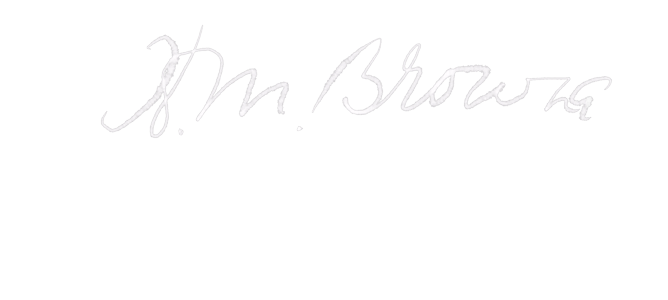 J. M. Brown